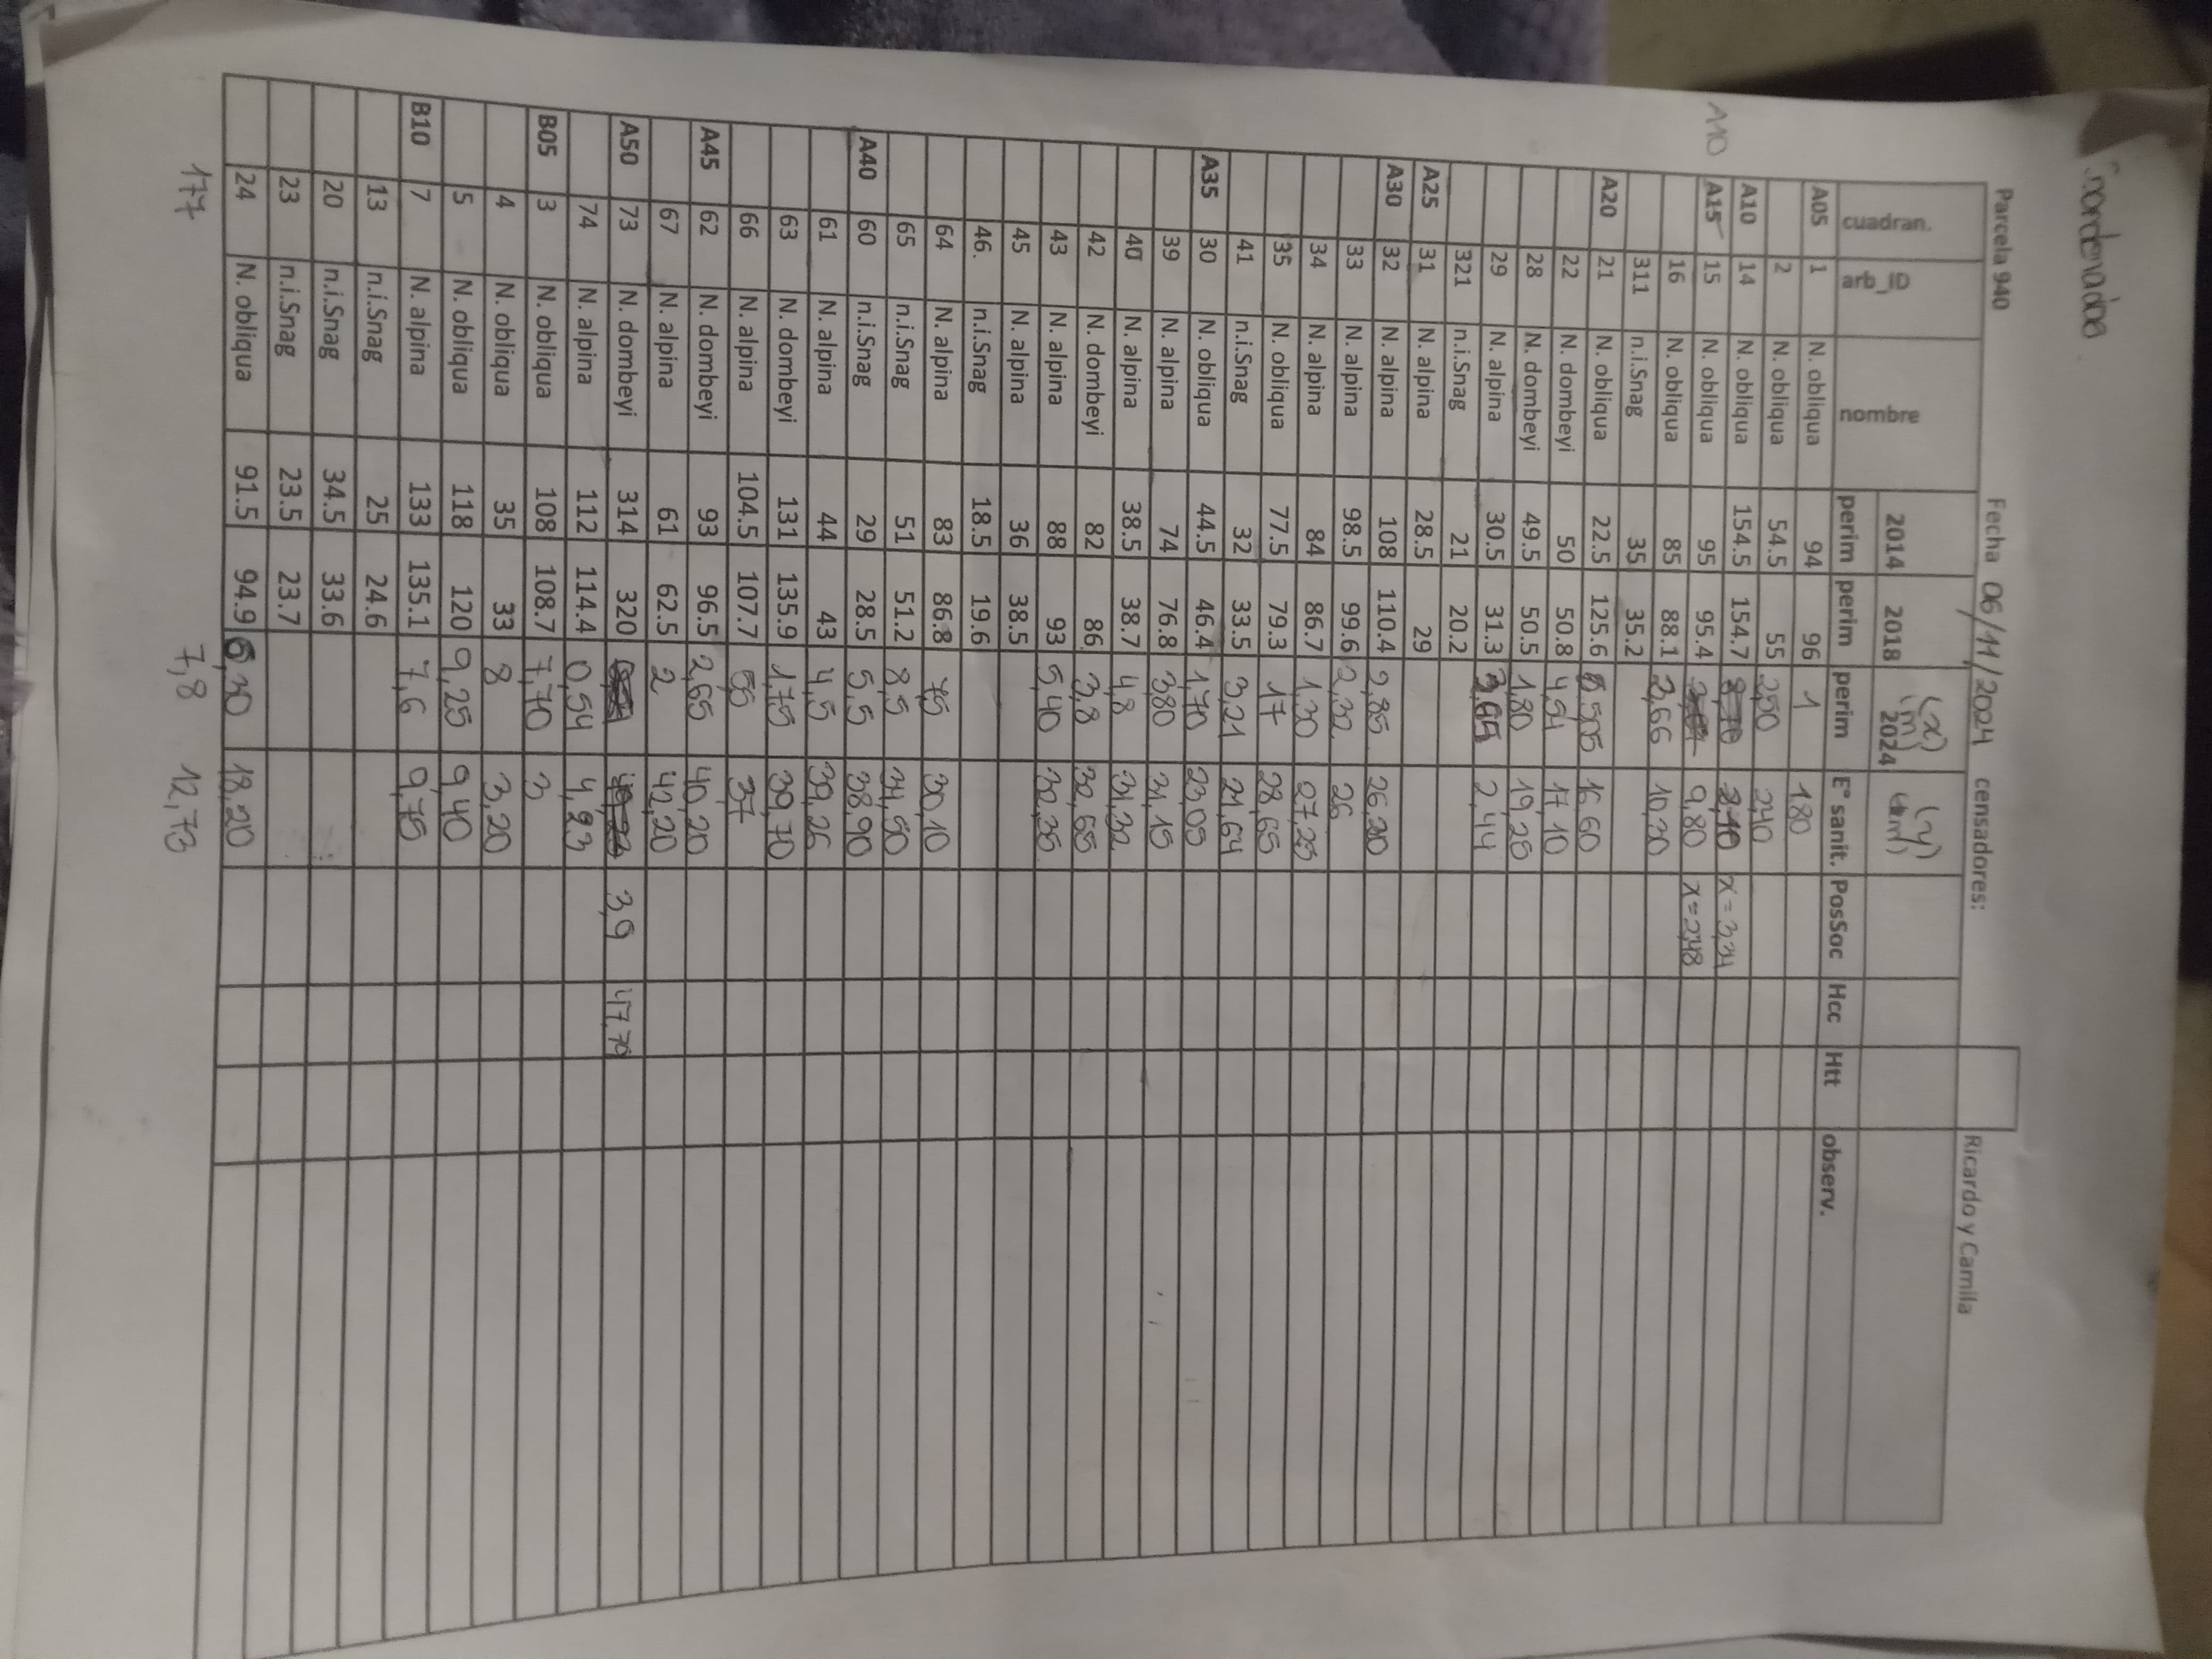 Coordenadas
Parcela 940 Fecha 06/11/2024 censadores: Ricardo y Camila
2014 2018 (x) (m) 2024 (y)
cuadran. arb_ID nombre perim perim perim Eº sanit. PosSoc Hcc Htt observ.
A05 1 N. obliqua 94 96 1 1,80
2 N. obliqua 54.5 55 2,50 2,40
A10 14 N. obliqua 154.5 154.7 2,10 x=3,34
A10 A15 15 N. obliqua 95 95.4 9,80 x=2,48
16 N. obliqua 85 88.1 2,66 10,30
311 n.i.Snag 35 35.2
A20 21 N. obliqua 22.5 125.6 16,60
22 N. dombeyi 50 50.8 4,54 17,10
28 N. dombeyi 49.5 50.5 1,80 19,25
29 N. alpina 30.5 31.3 2,44
321 n.i.Snag 21 20.2
A25 31 N. alpina 28.5 29
A30 32 N. alpina 108 110.4 2,85 26,20
33 N. alpina 98.5 99.6 2,32 26
34 N. alpina 84 86.7 1,30 27,25
35 N. obliqua 77.5 79.3 17 28,65
41 n.i.Snag 32 33.5 3,21 21,64
A35 30 N. obliqua 44.5 46.4 1,70 23,05
39 N. alpina 74 76.8 3,80 31,15
40 N. alpina 38.5 38.7 4,8 31,32
42 N. dombeyi 82 86 3,8 32,65
43 N. alpina 88 93 5,40 32,35
45 N. alpina 36 38.5
46. n.i.Snag 18.5 19.6
64 N. alpina 83 86.8 75 30,10
65 n.i.Snag 51 51.2 8,5 34,50
A40 60 n.i.Snag 29 28.5 5,5 38,90
61 N. alpina 44 43 4,5 39,26
63 N. dombeyi 131 135.9 1,75 39,70
66 N. alpina 104.5 107.7 55 37
A45 62 N. dombeyi 93 96.5 2,65 40,20
67 N. alpina 61 62.5 2 42,20
A50 73 N. dombeyi 314 320 3,9 47,70
74 N. alpina 112 114.4 0,54 4,93
B05 3 N. obliqua 108 108.7 7,70 3
4 N. obliqua 35 33 8 3,20
5 N. obliqua 118 120 9,25 9,40
B10 7 N. alpina 133 135.1 7,6 9,75
13 n.i.Snag 25 24.6
20 n.i.Snag 34.5 33.6
23 n.i.Snag 23.5 23.7
24 N. obliqua 91.5 94.9 18,20
177 7,8 12,73